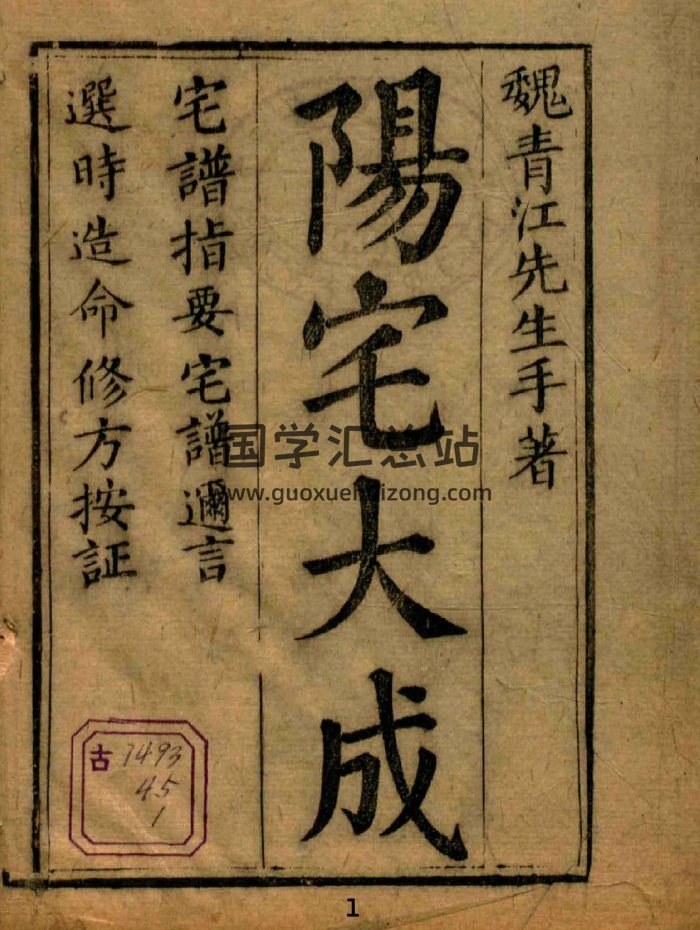 魏青江先生手著
陽宅大成
宅譜指要宅譜邇言
選時造命修方按証
国学汇总站
www.guoxuehuizong.com
古 7493
45
1
1